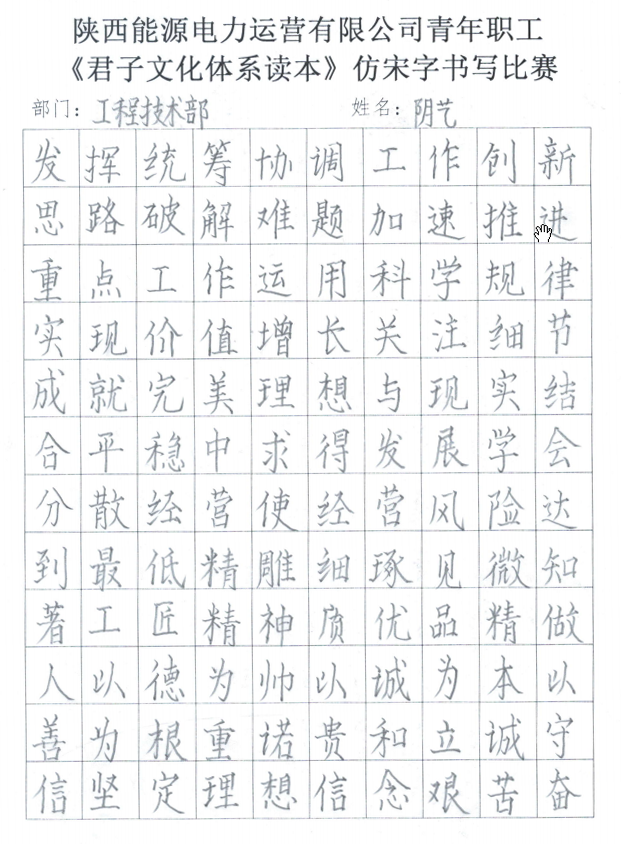 陕西能源电力运营有限公司青年职工
《君子文化体系读本》仿宋字书写比赛
部门: 工程技术部 姓名: 阴艺
发挥统筹协调工作创新
思路破解难题加速推进
重点工作运用科学规律
实现价值增长关注细节
成就完美理想与现实结
合平稳中求得发展学会
分散经营使经营风险达
到最低精雕细琢见微知
著工匠精神质优品精做
人以德为帅以诚为本以
善为根重诺贵和立诚守
信坚定理想信念艰苦奋